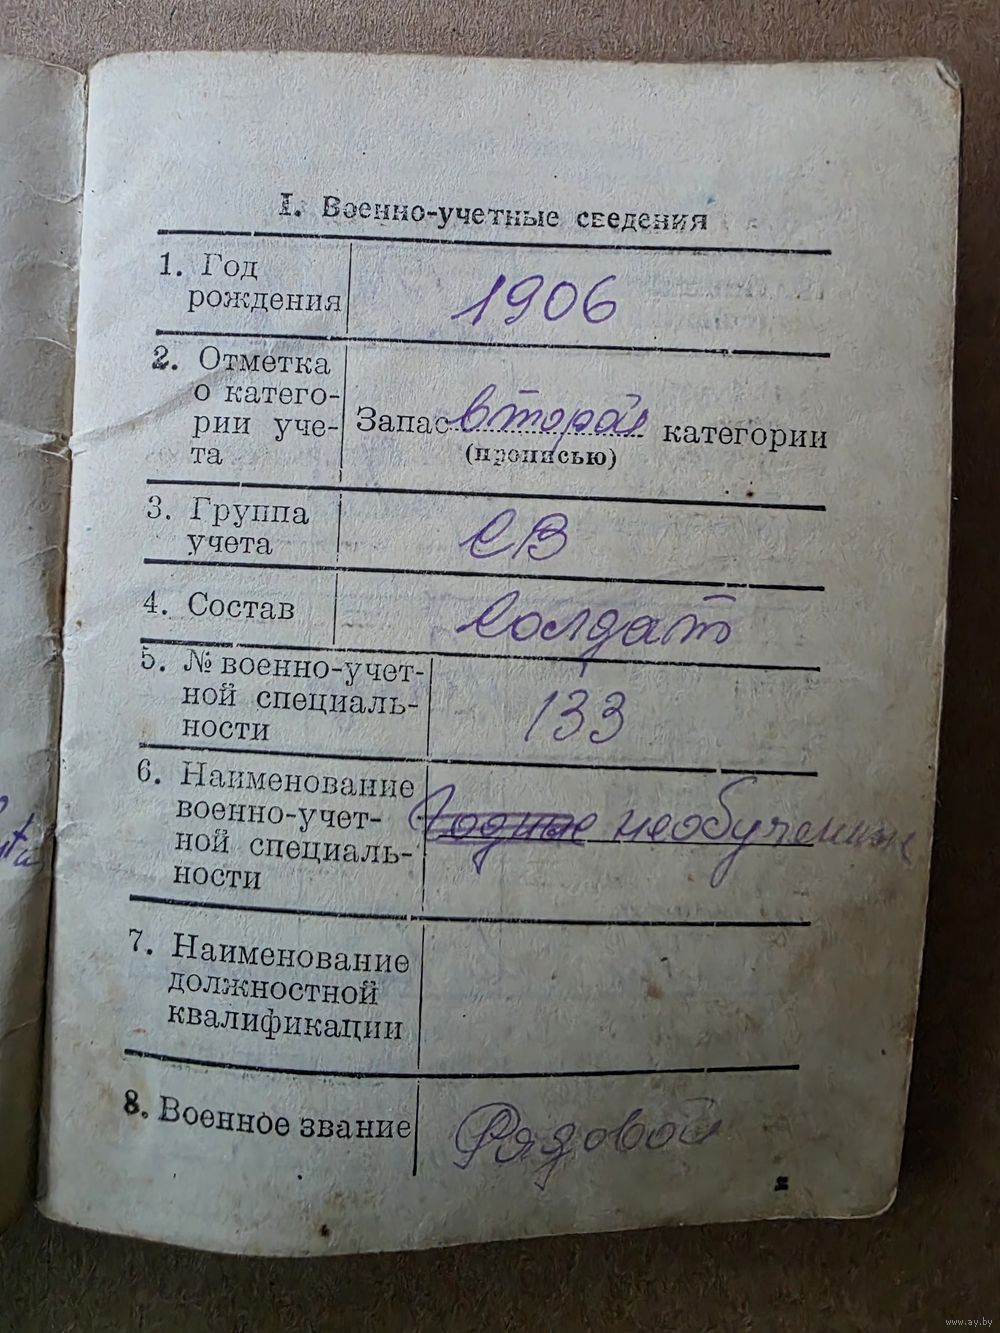 I. Военно-учетные сведения
1. Год
рождения
1906
2. Отметка
о катего-
рии уче-
та
Запас второй категории
(прописью)
3. Группа
учета
СВ
4. Состав
Солдат
5. № военно-учет-
ной специаль-
ности
133
6. Наименование
военно-учет-
ной специаль-
ности
Годные необученные
7. Наименование
должностной
квалификации
8. Военное звание
Рядовой
www.ay.by